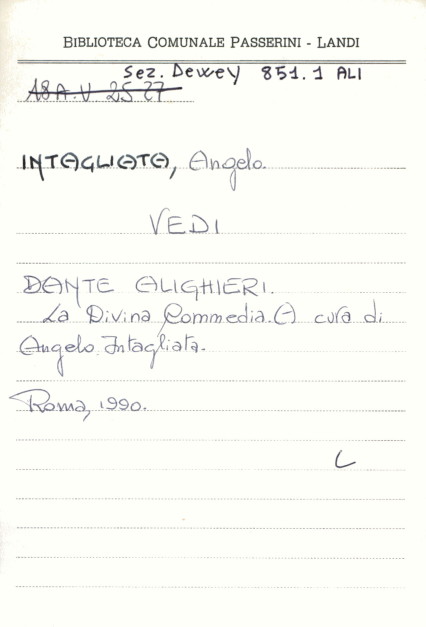 BIBLIOTECA COMUNALE PASSERINI - LANDI
Sez. Dewey 851.1 ALI
18A.V. 25-27
INTAGLIATA, Angelo.
VEDI
DANTE ALIGHIERI.
La Divina Commedia. A cura di
Angelo Intagliata.
Roma, 1990.
L